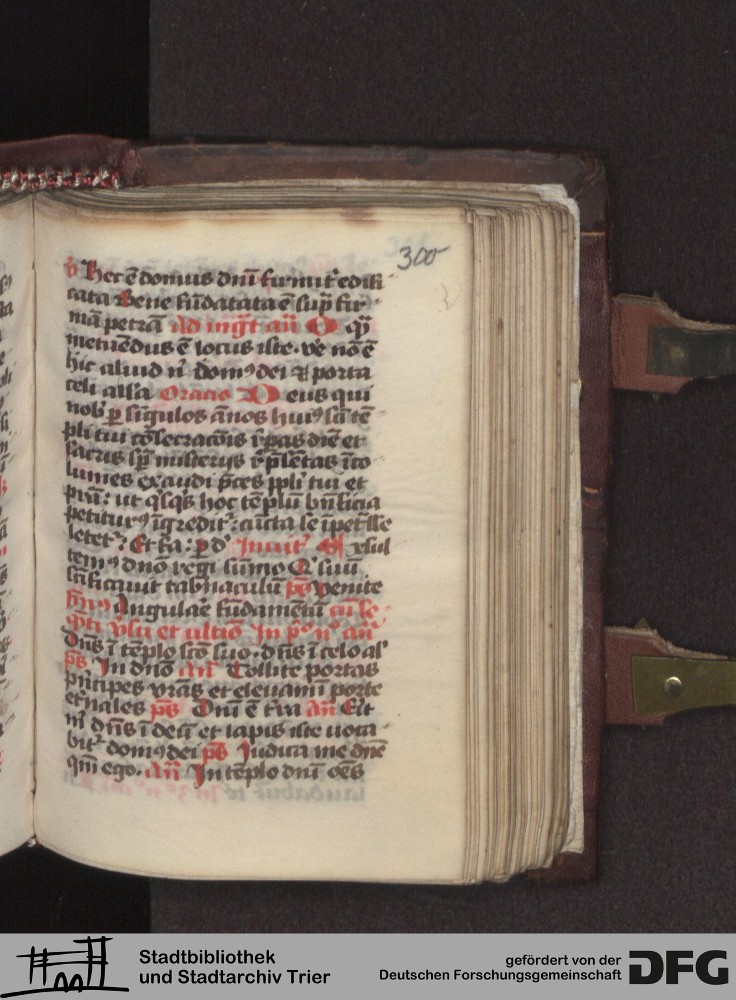 300
v Hec ē domus dn̄i firmit᷑ edifi-
cata Bene fūdatata ē sup̄ fir-
mā petrā Ad mḡt an̄ O q̄
metuēdus ē locus iste· ve᷑ nō ē
hic aliud n̄ domꝯ dei ⁊ porta
celi all'a Oracio D eus qui
nob᷑ ꝑ sīgulos ānos huiꝯ sc̄i tē-
pli tui cōsecracōis r̄pas diē et
sacris sp̄ misterijs r̄p̄sētas īco-
lumes exaudi p̄ces ppl̄i tui et
p̄sta: ut q̄sq̄s hoc tēplū bn̄ficia
petiturꝯ īgredit᷑: cūcta se īpet᷑sse
letet᷑: Et fīa: ꝑ d' Inuit᷑ Exsul
temꝯ dn̄o regi sūmo Q' suū
sc̄ificauit tab᷑naculū p̄s venite
ymꝯ Angulaē fūdamētū cū se-
q̄nti v̄su et ultīo In p̄º nº an̄
Dn̄s ī tēplo sc̄o suo· dn̄s ī celo al'
p̄s In dn̄o an̄ Tollite portas
prīcipes vr̄as et eleuamī porte
et᷑nales p̄s Dn̄i ē t᷑ra an̄ E᷑it
m̄ dn̄s ī deū et lapis iste uoca-
bit᷑ domꝯ dei p̄s Iudica me dn̄e
qm̄ ego· an̄ In tēplo dn̄i oēs
Stadtbibliothek
und Stadtarchiv Trier
gefördert von der
Deutschen Forschungsgemeinschaft DFG